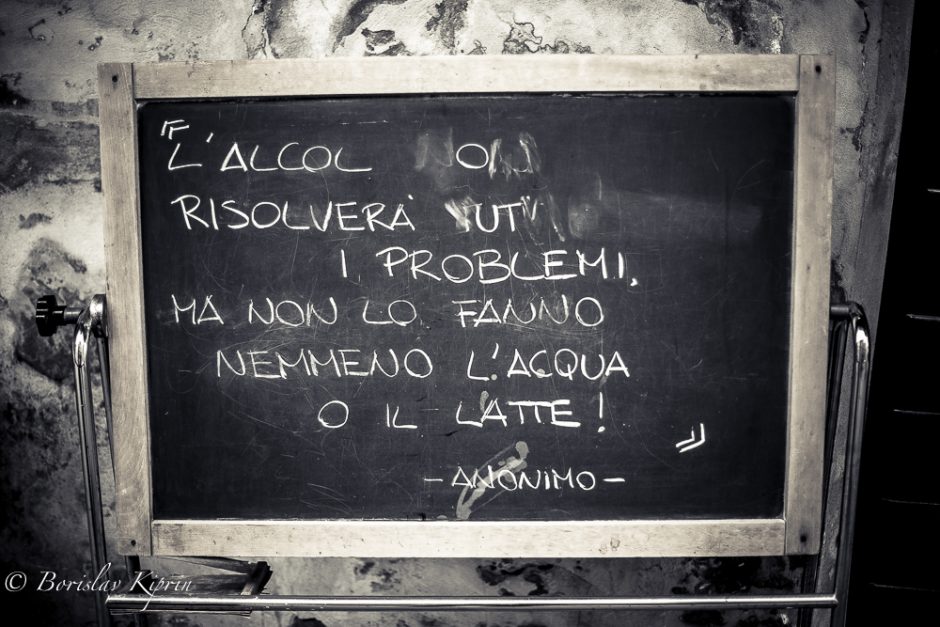 "L'ALCOL NON
RISOLVERÀ TUTTI
I PROBLEMI,
MA NON LO FANNO
NEMMENO L'ACQUA
O IL LATTE!
"
-ANONIMO-
© Borislav Kiprin